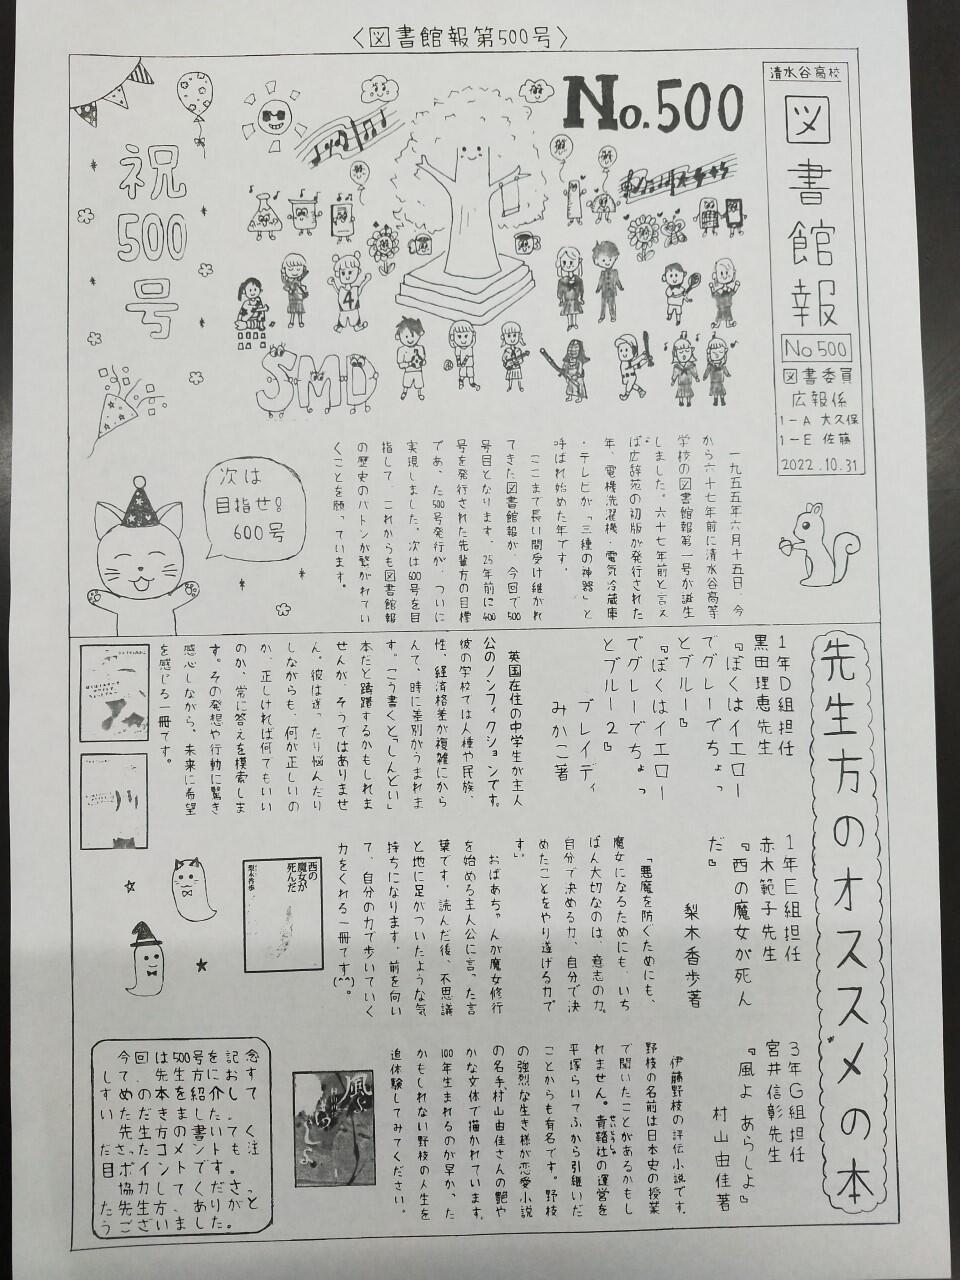 〈図書館報第500号〉
清水谷高校
図書館報
No 500
図書委員
広報係
1-A 大久保
1-E 佐藤
2022.10.31
No.500
祝
500
号
SMD
次は
目指せ!
600号
一九五五年六月十五日、今
から六十七年前に清水谷高等
学校の図書館報第一号が誕生
しました。六十七年前と言え
ば広辞苑の初版が発行された
年、電機洗濯機・電気冷蔵庫
・テレビが「三種の神器」と
呼ばれ始めた年です。
ここまで長い間受け継がれ
てきた図書館報が、今回で500
号目となります。25年前に400
号を発行された先輩方の目標
であった500号発行が、ついに
実現しました。次は600号を目
指して、これからも図書館報
の歴史のバトンが繋がれてい
くことを願っています。
先生方のオススメの本
1年D組担任
黒田理恵先生
『ぼくはイエロー
でグレーでちょっ
とブルー』
『ぼくはイエロー
でグレーでちょっ
とブルー2』
ブレイディ
みかこ著
英国在住の中学生が主人
公のノンフィクションです。
彼の学校では人種や民族、
性、経済格差が複雑にから
んで、時に差別がうまれま
す。こう書くと「しんどい」
本だと躊躇するかもしれま
せんが、そうではありませ
ん。彼は迷ったり悩んだり
しながらも、何が正しいの
か、正しければ何でもいい
のか、常に答えを模索しま
す。その発想や行動に驚き
感心しながら、未来に希望
を感じる一冊です。
1年E組担任
赤木範子先生
『西の魔女が死ん
だ』
梨木香歩著
「悪魔を防ぐためにも、
魔女になるためにも、いち
ばん大切なのは、意志の力。
自分で決める力、自分で決
めたことをやり遂げる力で
す」
おばあちゃんが魔女修行
を始める主人公に言った言
葉です。読んだ後、不思議
と地に足がついたような気
持ちになります。前を向い
て、自分の力で歩いていく
力をくれる一冊です(^^)。
西の
魔女が
死んだ
梨木香歩
3年G組担任
宮井信彰先生
『風よ あらしよ』
村山由佳著
伊藤野枝の評伝小説です。
野枝の名前は日本史の授業
で聞いたことがあるかもし
れません。青鞜社の運営を
せいとうしゃ
平塚らいてふから引継いだ
ことからも有名です。野枝
の強烈な生き様が恋愛小説
の名手、村山由佳さんの艶や
かな文体で描かれています。
100年生まれるのが早かった
かもしれない野枝の人生を
追体験してみてください。
風よ
あらしよ
今回は500号を記念
しての先生方におす
すめの本を紹介して
いただきました。
先生のコメントも
さっと書き
注目ポイントです。
協力してくださっ
た先生方、ありがと
うございました。